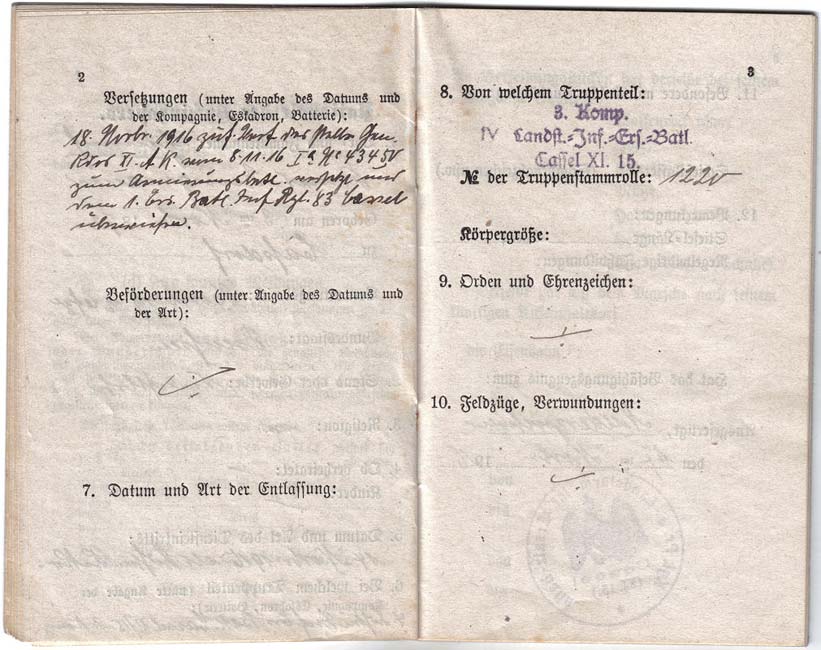 2
Versetzungen (unter Angabe des Datums und
der Kompagnie, Eskadron, Batterie):
18. Novbr. 1916 zuf. Verf. des stellv. Gen.
Kdos XI. A.K. vom 8.11.16 Ia No 43450
zum Armierungsbatl. versetzt und
dem 1. Ers. Batl. Inf. Rgt. 83 Cassel
überwiesen.
Beförderungen (unter Angabe des Datums und
der Art):
7. Datum und Art der Entlassung:
3
8. Von welchem Truppenteil:
3. Komp.
IV Landst.-Inf.-Ers.-Batl.
Cassel XI. 15.
№ der Truppenstammrolle: 1220
Körpergröße:
9. Orden und Ehrenzeichen:
10. Feldzüge, Verwundungen: